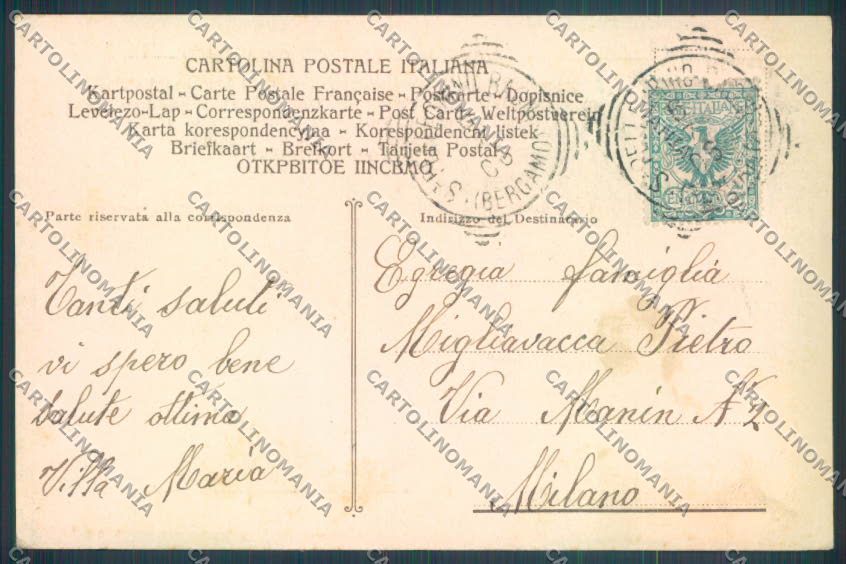 CARTOLINA POSTALE ITALIANA
Kartpostal - Carte Postale Française - Postkarte - Dopisnice
Levelezo-Lap - Correspondenzkarte - Post Card - Weltpostverein
Karta korespondencyjna - Korespondenční listek
Briefkaart - Brefkort - Tarjeta Postal
ОТКРВІТОЕ ІІНСВМО
Parte riservata alla corrispondenza
Indirizzo del Destinatario
Tanti saluti
vi spero bene
salute ottima
Villa Maria
Egregia famiglia
Migliavacca Pietro
Via Manin
Milano
(BERGAMO)
CARTOLINOMANIA